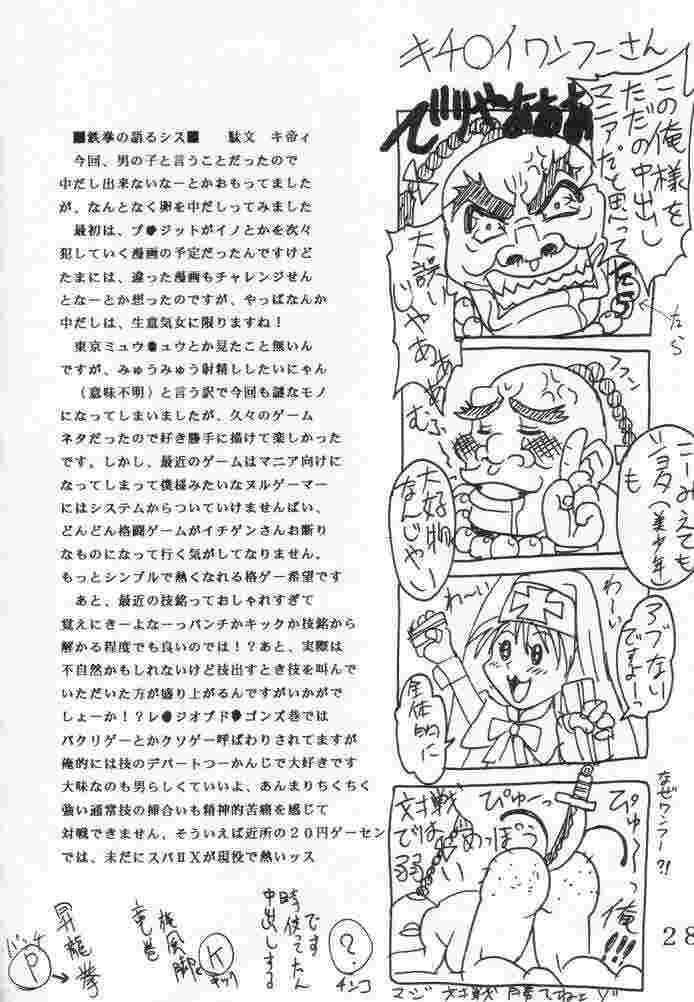 キチ○イワンフーさん
■鉄拳の語るシス■　駄文　キ帝ィ
今回、男の子と言うことだったので
中だし出来ないなーとかおもってました
が、なんとなく卵を中だしってみました
最初は、ブ●ジットがイノとかを次々
犯していく漫画の予定だったんですけど
たまには、違った漫画もチャレンジせん
となーとか想ったのですが、やっぱなんか
中だしは、生意気女に限りますね！
東京ミュウ●ュウとか見たこと無いん
ですが、みゅうみゅう射精ししたいにゃん
（意味不明）と言う訳で今回も謎なモノ
になってしまいましたが、久々のゲーム
ネタだったので好き勝手に描けて楽しかった
です。しかし、最近のゲームはマニア向けに
なってしまって僕様みたいなヌルゲーマー
にはシステムからついていけませんばい、
どんどん格闘ゲームがイチゲンさんお断り
なものになって行く気がしてなりません、
もっとシンプルで熱くなれる格ゲー希望です
あと、最近の技銘っておしゃれすぎて
覚えにきーよなーっパンチかキックか技銘から
解かる程度でも良いのでは！？あと、実際は
不自然かもしれないけど技出すとき技を叫んで
いただいた方が盛り上がるんですがいかがで
しょーか！？レ●ジオブド●ゴンズ巷では
パクリゲーとかクソゲー呼ばわりされてますが
俺的には技のデパートつーかんじで大好きです
大味なのも男らしくていいよ、あんまりちくちく
強い通常技の揷合いも精神的苦痛を感じて
対戦できません、そういえば近所の２０円ゲーセン
では、未だにスパⅡＸが現役で熱いッス
でりゃあああ
この俺様を
ただの中出し
マニアだと思って
たら
たら
大誤
じゃああ
フン
こーみえても
(美少年)
も
大好物
なんじゃい
わ〜い
わーい
アブない
ですよーっ
全体的に
なぜワンフー?!
対戦
では
めっぽう
弱い
ぴゅーっ
ぴゅ〜っ
俺!!!
マジ 対戦 勝てねェ
28
パンチ
P
→
昇龍拳
竜巻
旋風脚
K
キック
中出しする
時使ってたん
です
?
チンコ